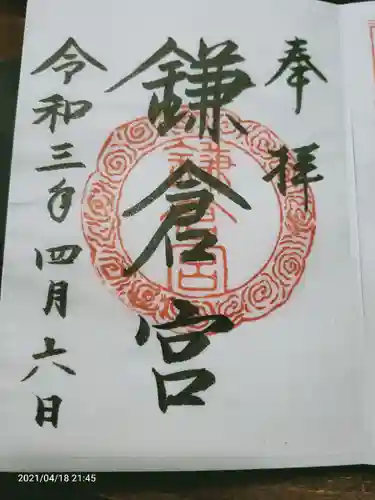 奉拝
鎌倉宮
令和三年四月六日
鎌倉宮
2021/04/18 21:45